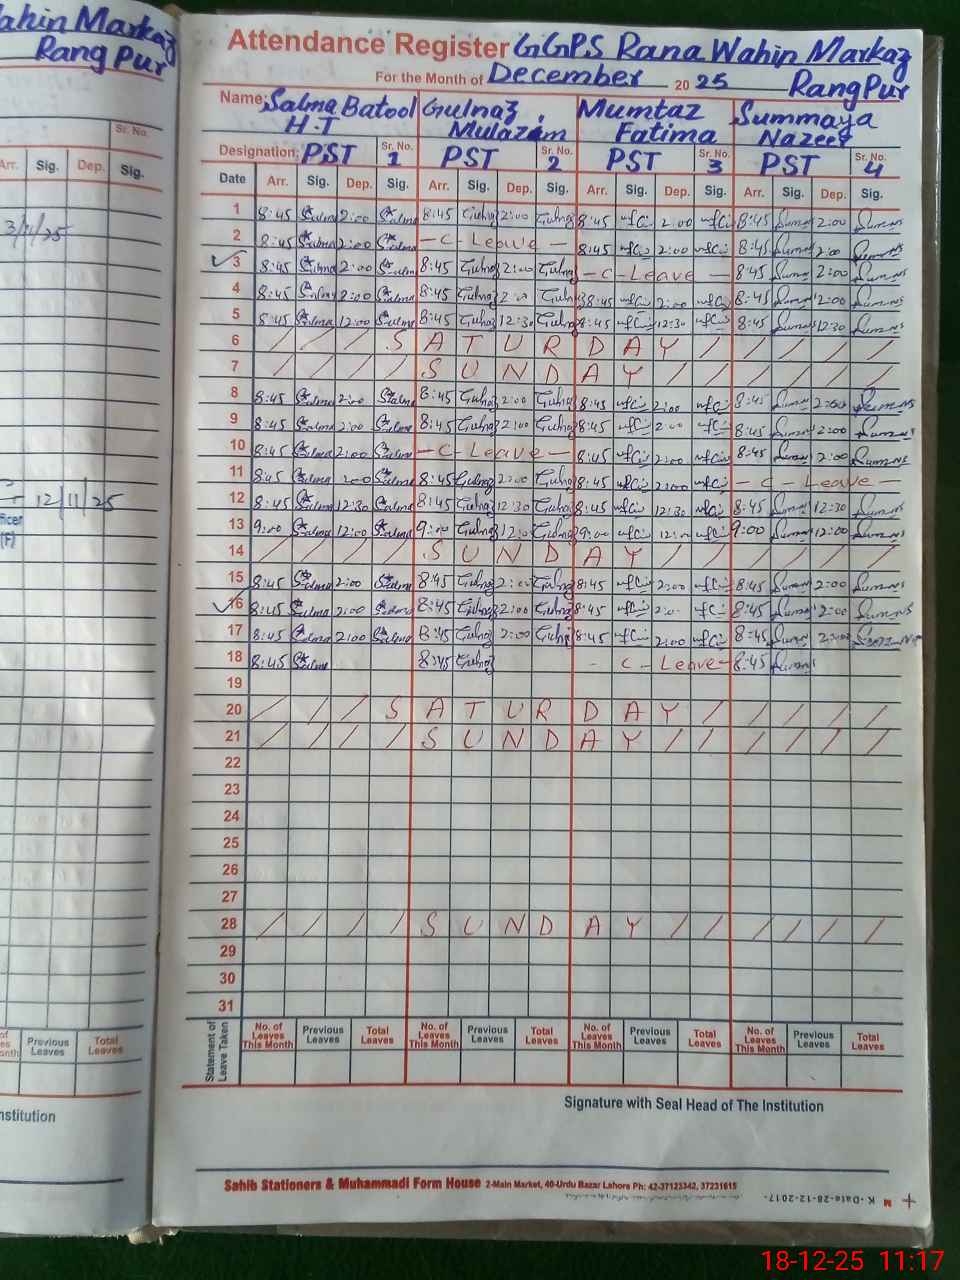 Wahin Markaz
Rang Pur
Sr. No.
Arr. Sig. Dep. Sig.
3/11/25
12/11/25
(F)
Previous Leaves Total Leaves
nstitution
Attendance Register GGPS Rana Wahin Markaz
For the Month of December 2025 Rang Pur
Name: Salma Batool H.T Gulnaz Mulazim Mumtaz Fatima Summaya Nazeer
Designation: PST Sr. No. 1 PST Sr. No. 2 PST Sr. No. 3 PST Sr. No. 4
Date Arr. Sig. Dep. Sig. Arr. Sig. Dep. Sig. Arr. Sig. Dep. Sig. Arr. Sig. Dep. Sig.
1 8:45 Salma 2:00 Salma 8:45 Gulnaz 2:00 Gulnaz 8:45 2:00 8:45 2:00
2 8:45 Salma 2:00 Salma - C - Leave - 8:45 2:00 8:45 2:00
3 8:45 Salma 2:00 Salma 8:45 Gulnaz 2:00 Gulnaz - C - Leave - 8:45 2:00
4 8:45 Salma 2:00 Salma 8:45 Gulnaz 2:00 Gulnaz 8:45 2:00 8:45 2:00
5 8:45 Salma 12:00 Salma 8:45 Gulnaz 12:30 Gulnaz 8:45 12:30 8:45 12:30
6 / / / S A T U R D A Y / / / / / /
7 / / / / S U N D A Y / / / / / /
8 8:45 Salma 2:00 Salma 8:45 Gulnaz 2:00 Gulnaz 8:45 2:00 8:45 2:00
9 8:45 Salma 2:00 Salma 8:45 Gulnaz 2:00 Gulnaz 8:45 2:00 8:45 2:00
10 8:45 Salma 2:00 Salma - C - Leave - 8:45 2:00 8:45 2:00
11 8:45 Salma 2:00 Salma 8:45 Gulnaz 2:00 Gulnaz 8:45 2:00 - C - Leave -
12 8:45 Salma 12:30 Salma 8:45 Gulnaz 12:30 Gulnaz 8:45 12:30 8:45 12:30
13 9:00 Salma 12:00 Salma 9:00 Gulnaz 12:00 Gulnaz 9:00 12:00 9:00 12:00
14 / / / / S U N D A Y / / / / / /
15 8:45 Salma 2:00 Salma 8:45 Gulnaz 2:00 Gulnaz 8:45 2:00 8:45 2:00
16 8:45 Salma 2:00 Salma 8:45 Gulnaz 2:00 Gulnaz 8:45 2:00 8:45 2:00
17 8:45 Salma 2:00 Salma 8:45 Gulnaz 2:00 Gulnaz 8:45 2:00 8:45 2:00
18 8:45 Salma 8:45 Gulnaz - C - Leave - 8:45
19
20 / / / S A T U R D A Y / / / / /
21 / / / / S U N D A Y / / / / / /
22
23
24
25
26
27
28 / / / / S U N D A Y / / / / / /
29
30
31
Statement of Leave Taken No. of Leaves This Month Previous Leaves Total Leaves No. of Leaves This Month Previous Leaves Total Leaves No. of Leaves This Month Previous Leaves Total Leaves No. of Leaves This Month Previous Leaves Total Leaves
Signature with Seal Head of The Institution
Sahib Stationers & Muhammadi Form House 2-Main Market, 40-Urdu Bazar Lahore Ph: 42-37123342, 37231615
M K-Date-28-12-2017-
18-12-25 11:17